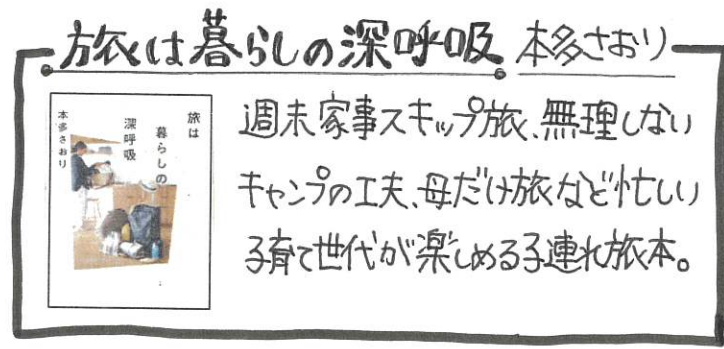 旅は暮らしの深呼吸 本多さおり
旅は
暮らしの
深呼吸
本多さおり
週末家事スキップ旅、無理しない
キャンプの工夫、母だけ旅など忙しい
子育て世代が楽しめる子連れ旅本。